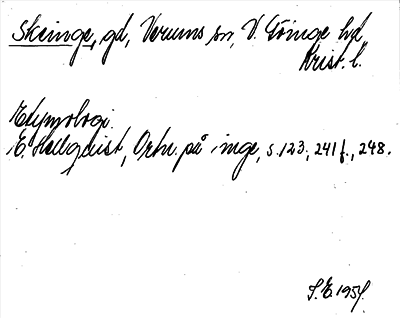 Skeinge, gd, Verums sn, V. Göinge hd,
Krist. l.
Etymologi.
E. Hellquist, Ortn. på -inge, s. 123, 241 f., 248.
S.E. 1954.